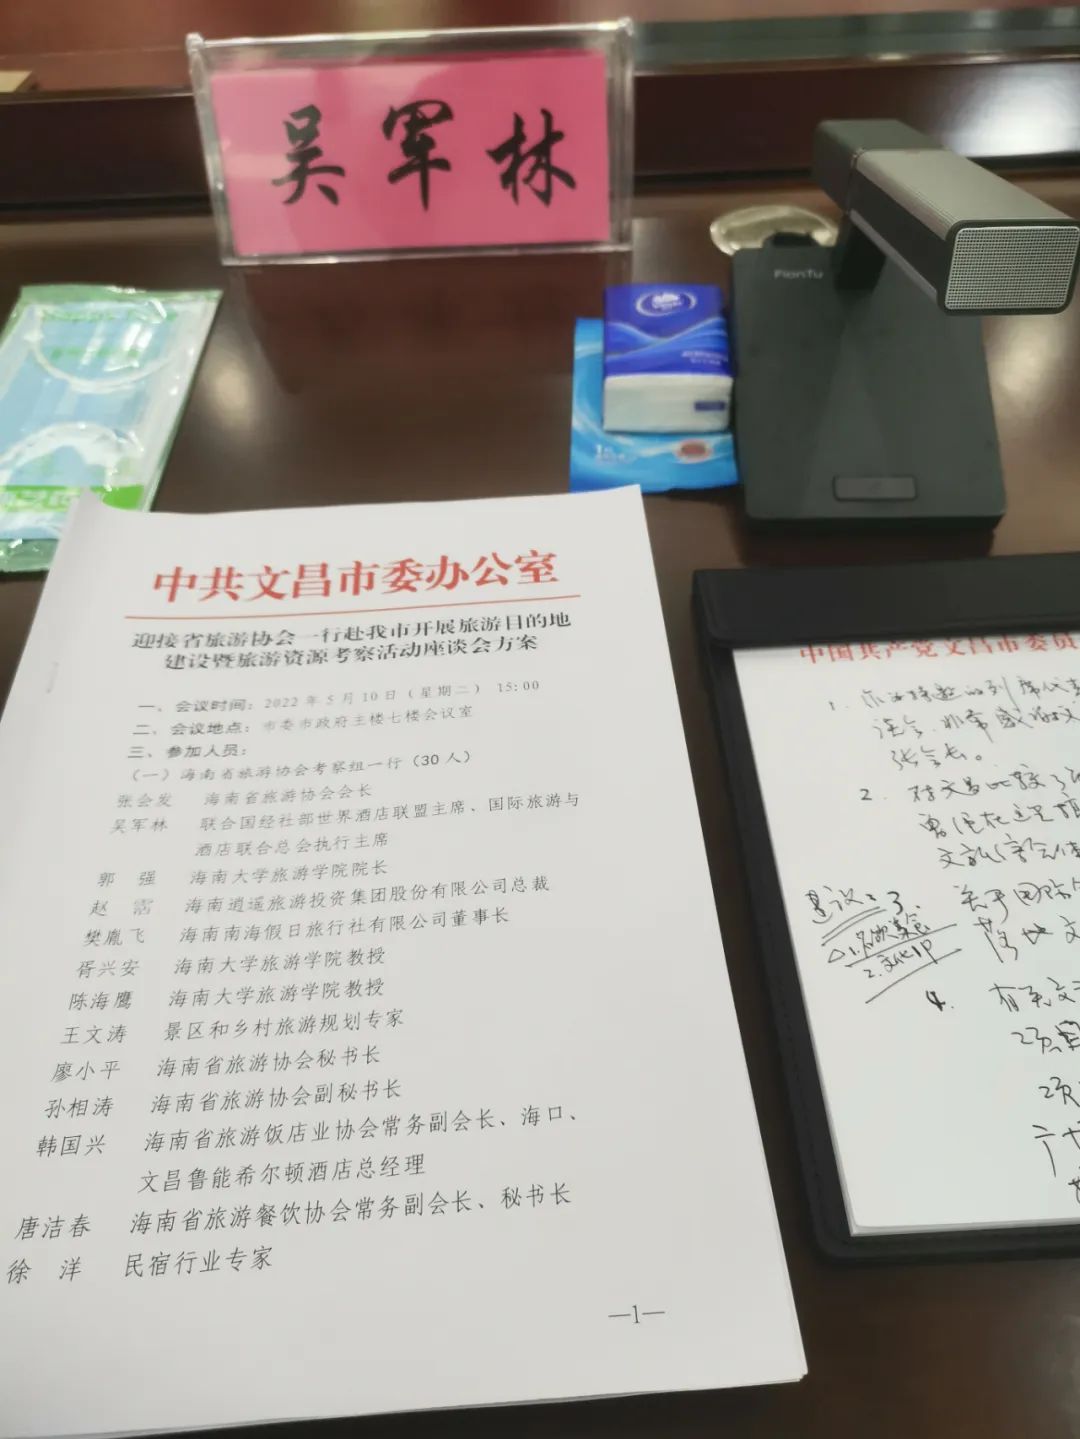 吴军林
FionTu
中共文昌市委办公室
迎接省旅游协会一行赴我市开展旅游目的地
建设暨旅游资源考察活动座谈会方案
一、会议时间：2022年5月10日（星期二） 15:00
二、会议地点：市委市政府主楼七楼会议室
三、参加人员：
（一）海南省旅游协会考察组一行（30人）
张会发 海南省旅游协会会长
吴军林 联合国经社部世界酒店联盟主席、国际旅游与
酒店联合总会执行主席
郭 强 海南大学旅游学院院长
赵 海南逍遥旅游投资集团股份有限公司总裁
樊胤飞 海南南海假日旅行社有限公司董事长
胥兴安 海南大学旅游学院教授
陈海鹰 海南大学旅游学院教授
王文涛 景区和乡村旅游规划专家
廖小平 海南省旅游协会秘书长
孙相涛 海南省旅游协会副秘书长
韩国兴 海南省旅游饭店业协会常务副会长、海口、
文昌鲁能希尔顿酒店总经理
唐洁春 海南省旅游餐饮协会常务副会长、秘书长
徐 洋 民宿行业专家
—1—
中国共产党文昌市委员
1.
非常感谢文
张会长。
2. 对文昌比较了
建议：3. 关于国际
落地文
2.文化IP
4. 有关文